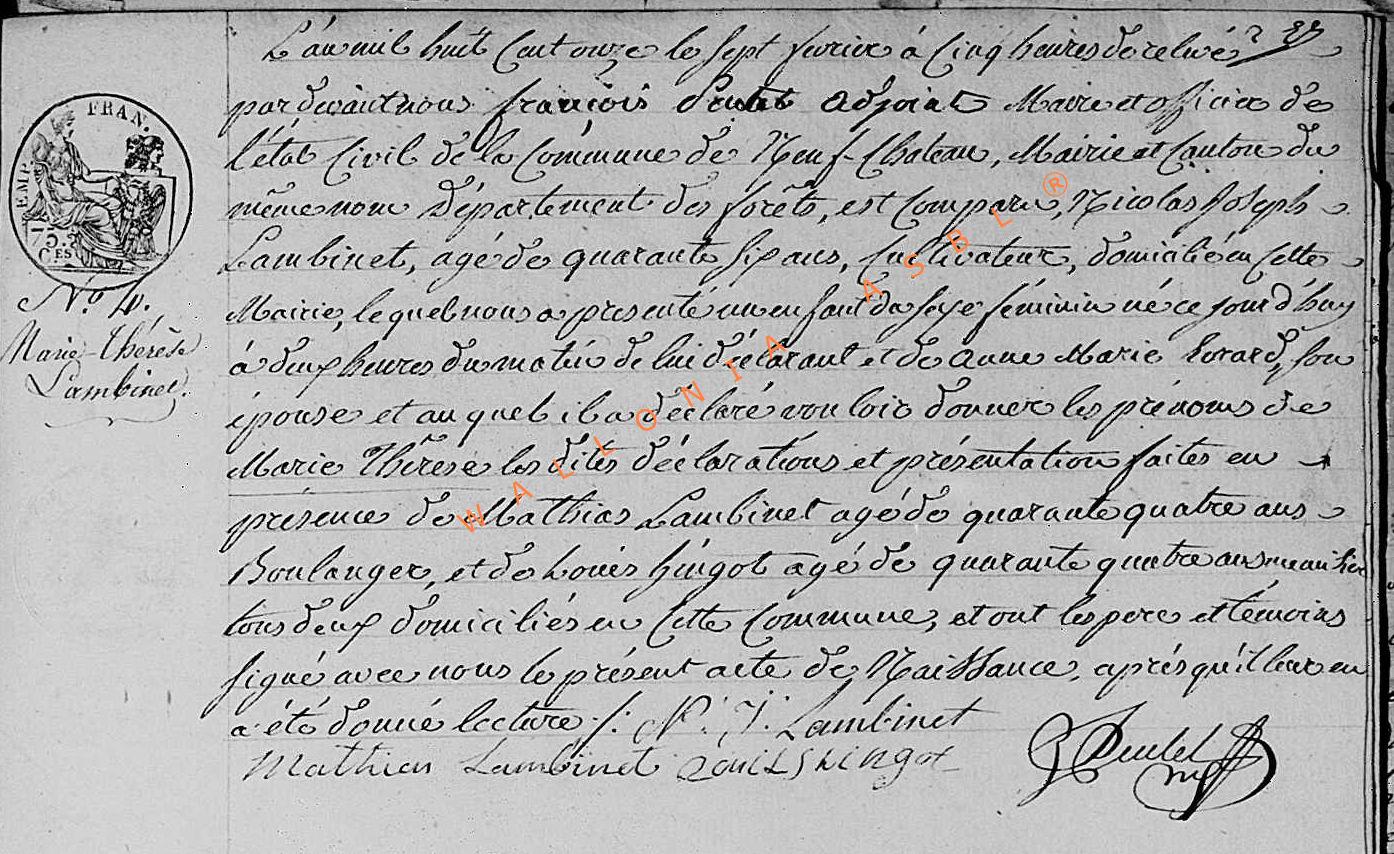 L'an mil huit Cent onze le sept fevrier à Cinq heures de relevé
pardevant nous françois adjoint Maire et officier de
l'état Civil de la Commune de Neuf-Chateau, Mairie et Canton du
même nom Département des forêts, est Comparu, Nicolas Joseph
Lambinet, agé de quarante six ans, Cultivateur, domicilié en Cette
Mairie, lequel nous a presenté un enfant du sexe féminin né ce jour d'huy
à deux heures du matin de lui déclarant et de anne Marie Evrard, son
épouse et auquel il a déclaré vouloir donner les prénoms de
Marie Thérèse les dites déclarations et présentation faites en
présence de Mathias Lambinet agé de quarante quatre ans
Boulanger, et de Louis hingot agé de quarante quatre ans
tous deux domiciliés en Cette Commune, et ont les pere et témoins
signé avec nous le présent acte de Naissance, après qu'il leur en
a été donné lecture ./. N: J: Lambinet
Mathias Lambinet
FRAN.
EMP.
75
CES
No. 4.
Marie-Thérèse
Lambinet.
WALLONIA ASBL ®